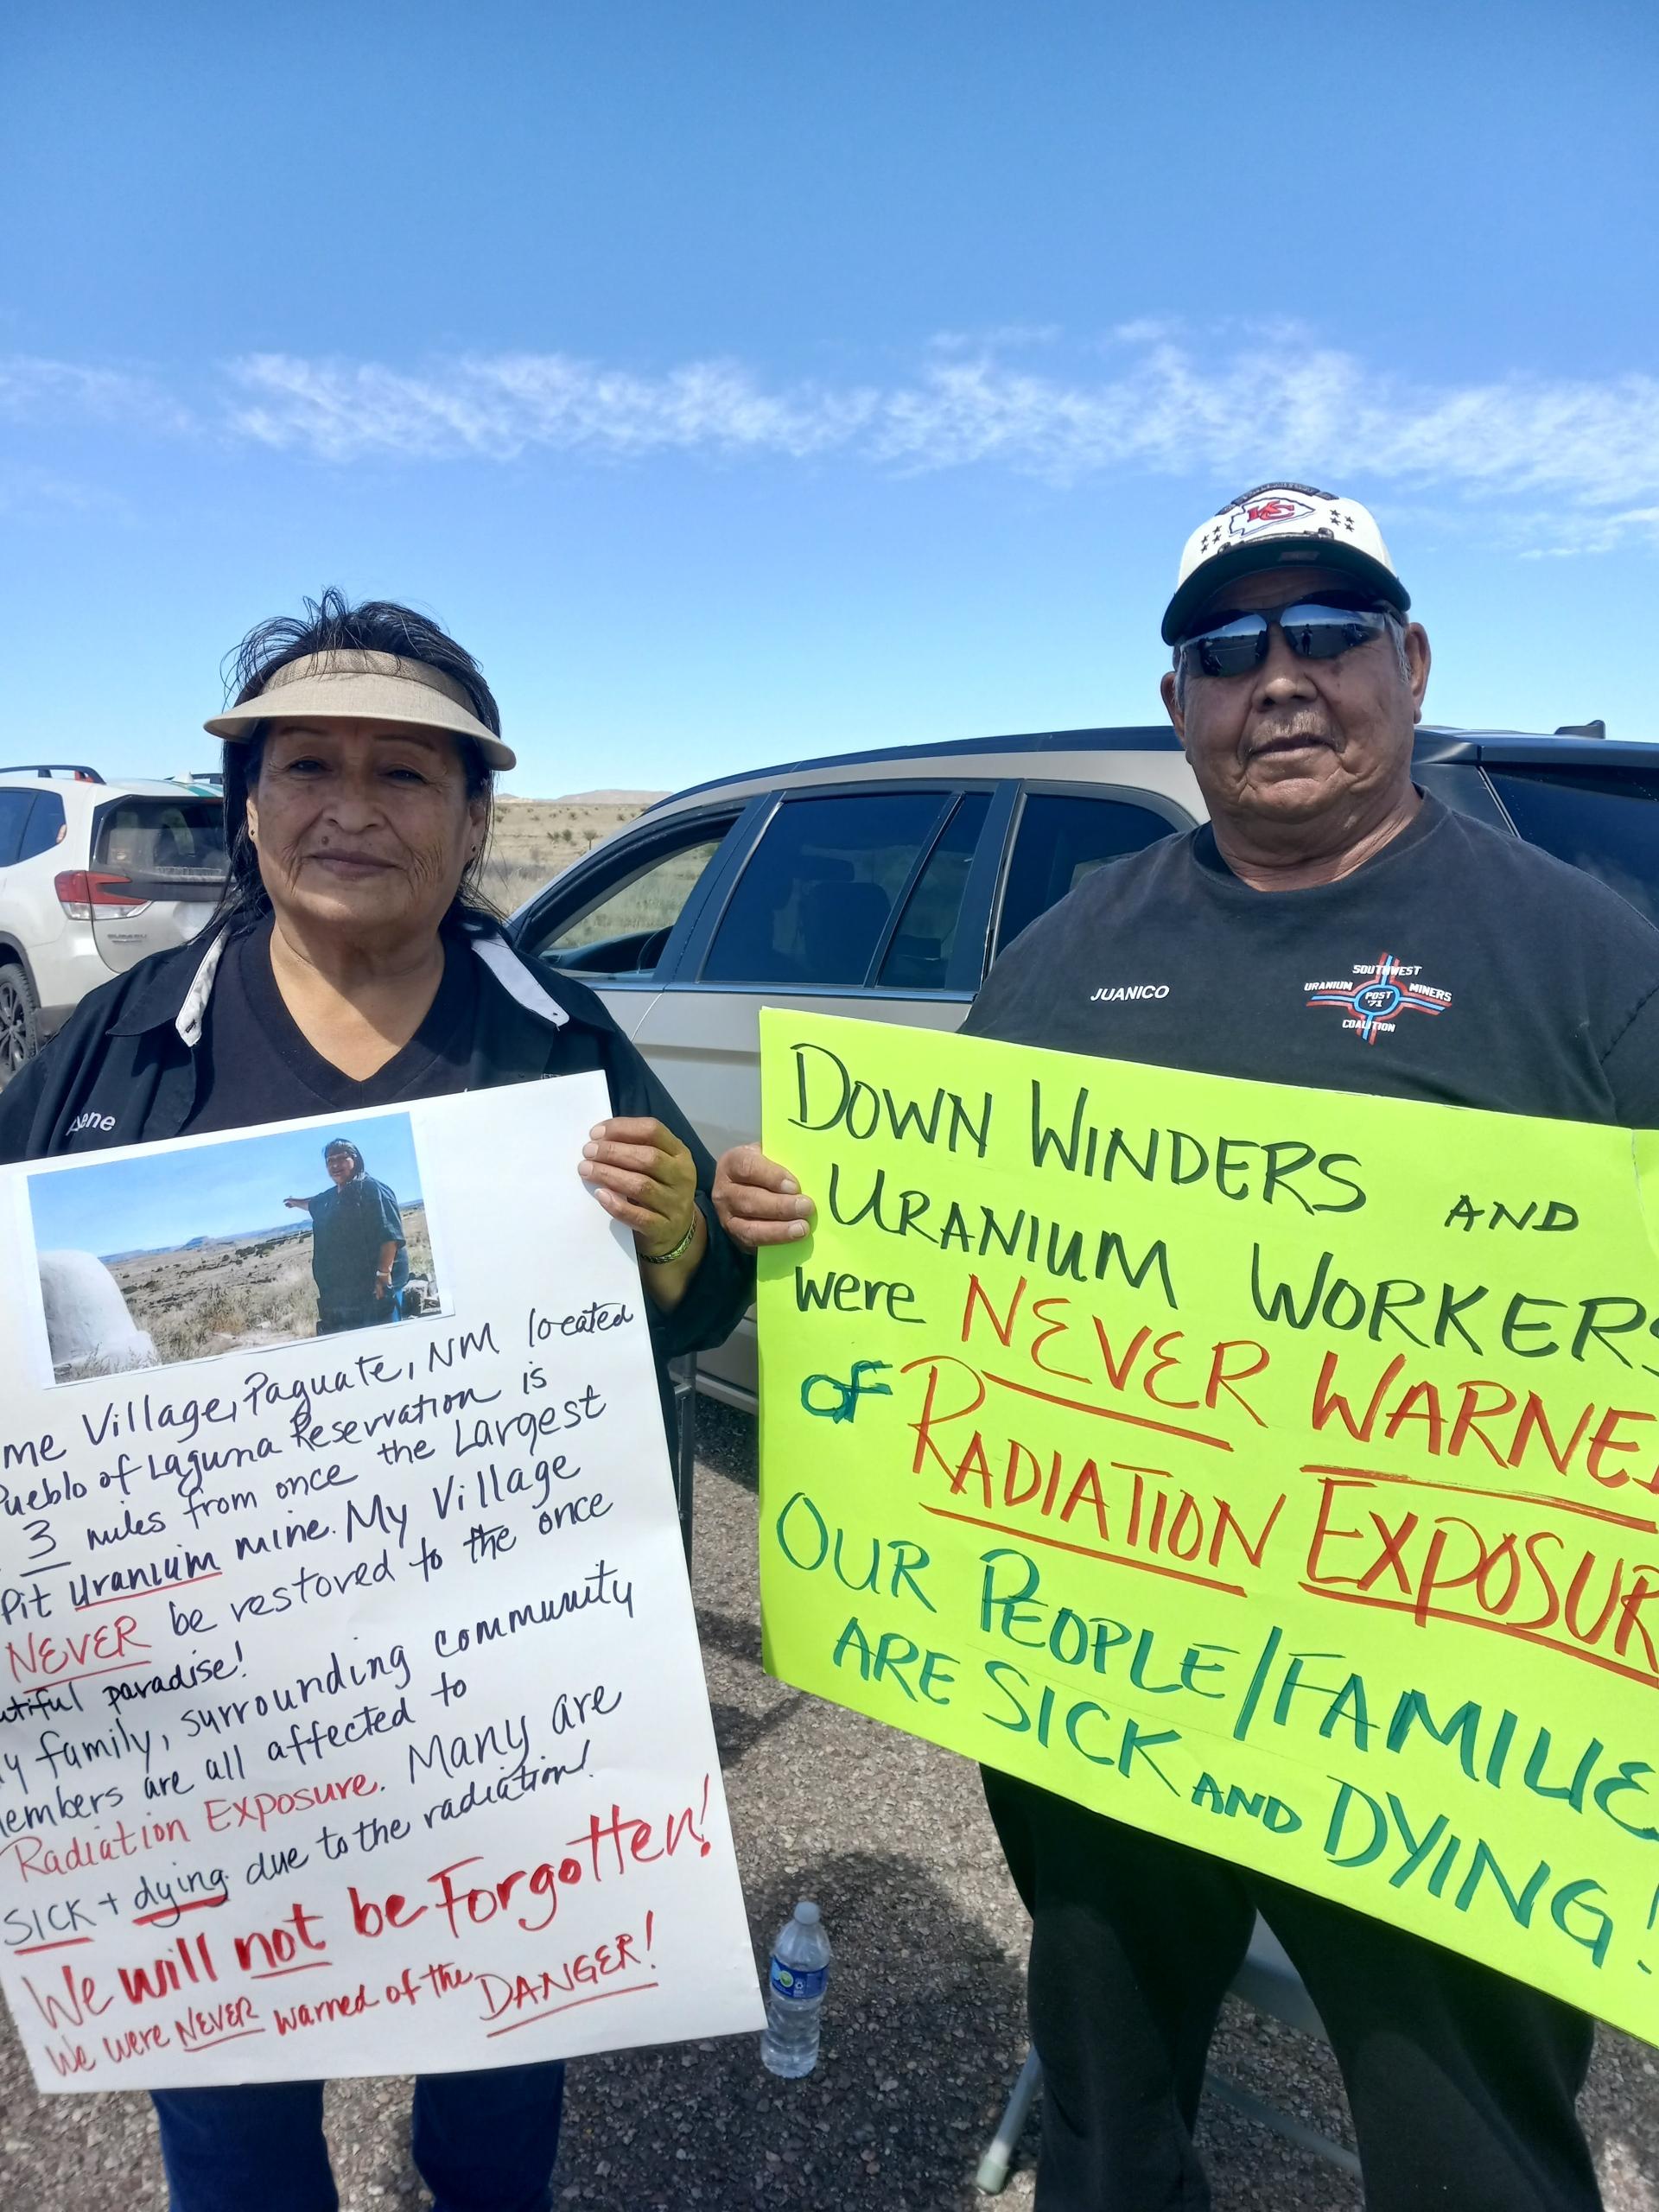 KC
SUBARU
JUANICO
SOUTHWEST
URANIUM MINERS
POST
'71
COALITION
me Village, Paguate, NM located
Pueblo of Laguna Reservation is
3 miles from once the Largest
Pit Uranium mine. My Village
NEVER be restored to the once
utiful paradise!
y family, surrounding community
members are all affected to
Radiation Exposure. Many are
SICK + dying due to the radiation!
We will not be Forgotten!
We were NEVER warned of the DANGER!
DOWN WINDERS AND
URANIUM WORKERS
were NEVER WARNED
OF RADIATION EXPOSUR
OUR PEOPLE/FAMILIE
ARE SICK AND DYING!